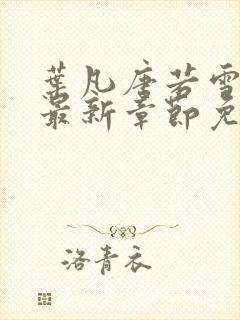 葉凡唐若雪
最新章節免
洛青衣